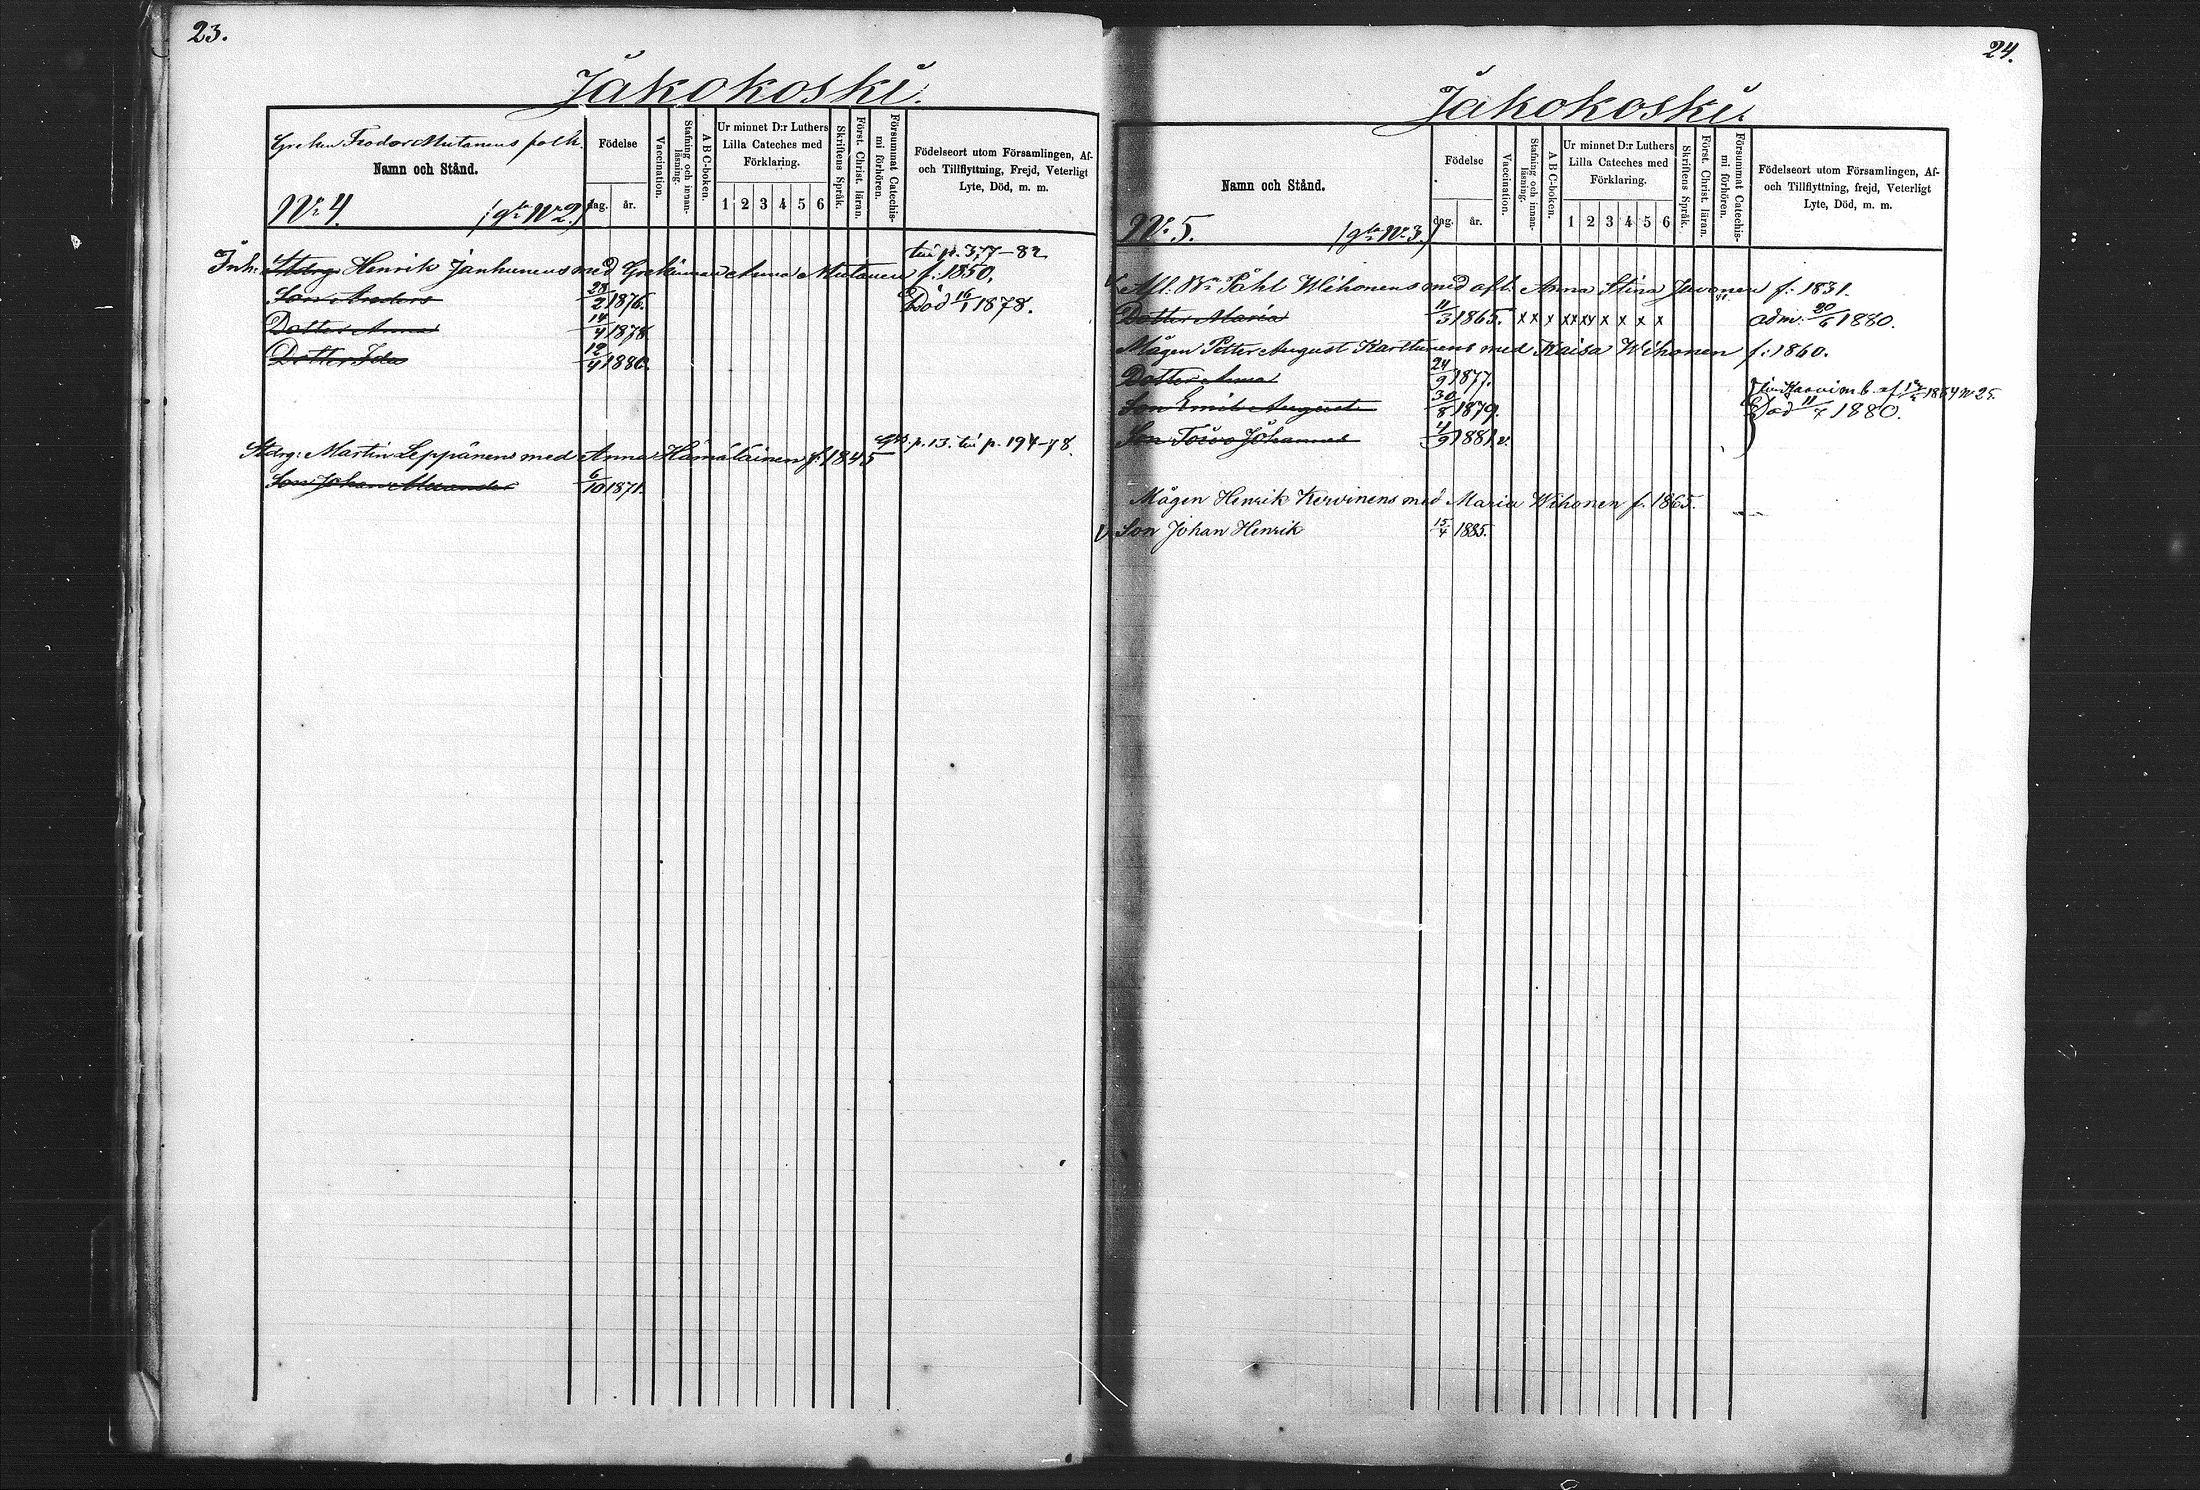 23.
Jakokoski.
Greken Feodor Mutanens folk.
Namn och Stånd.
No 4. (g:la No 2.)
Födelse
dag. år.
Vaccination.
Stafning och innanläsning.
A B C-boken.
Ur minnet D:r Luthers Lilla Cateches med Förklaring.
1 2 3 4 5 6
Skriftens Språk.
Först. Christ. läran.
Försummat Catechismi förhören.
Födelseort utom Församlingen, Af- och Tillflyttning, Frejd, Veterligt Lyte, Död, m. m.
till p. 377-82
Inh: Stdrg Henrik Janhunens med Grekinnan Anna Mutanen f: 1850.
Son Anders 28/2 1876. Död 16/1 1878.
Dotter Anna 14/4 1878
Dotter Ida 12/4 1880.
p. 13. till p. 194-78.
Stdrg: Martin Leppänens med Anna Hämäläinen f: 1845
Son Johan Alexander 6/10 1871.
24.
Jakokoski.
Namn och Stånd.
No 5. (g:la No 3.)
Födelse
dag. år.
Vaccination.
Stafning och innanläsning.
A B C-boken.
Ur minnet D:r Luthers Lilla Cateches med Förklaring.
1 2 3 4 5 6
Skriftens Språk.
Först. Christ. läran.
Försummat Catechismi förhören.
Födelseort utom Församlingen, Af- och Tillflyttning, frejd, Veterligt Lyte, Död, m. m.
Afl. Bn Påhl Wihonens med afl. Anna Stina Javonen f: 1831.
Dotter Maria 11/3 1865. x x x xx xy x x x x adm: 20/6 1880.
Mågen Petter August Karttunens med Kaisa Wihonen f: 1860.
Dotter Anna 24/9 1877. 1884 n 25.
Son Emil August 30/8 1879. Död 11/7 1880.
Son Toivo Johannes 4/9 1881. v.
Mågen Henrik Kervinens med Maria Wihonen f. 1865.
Son Johan Henrik 15/4 1885.